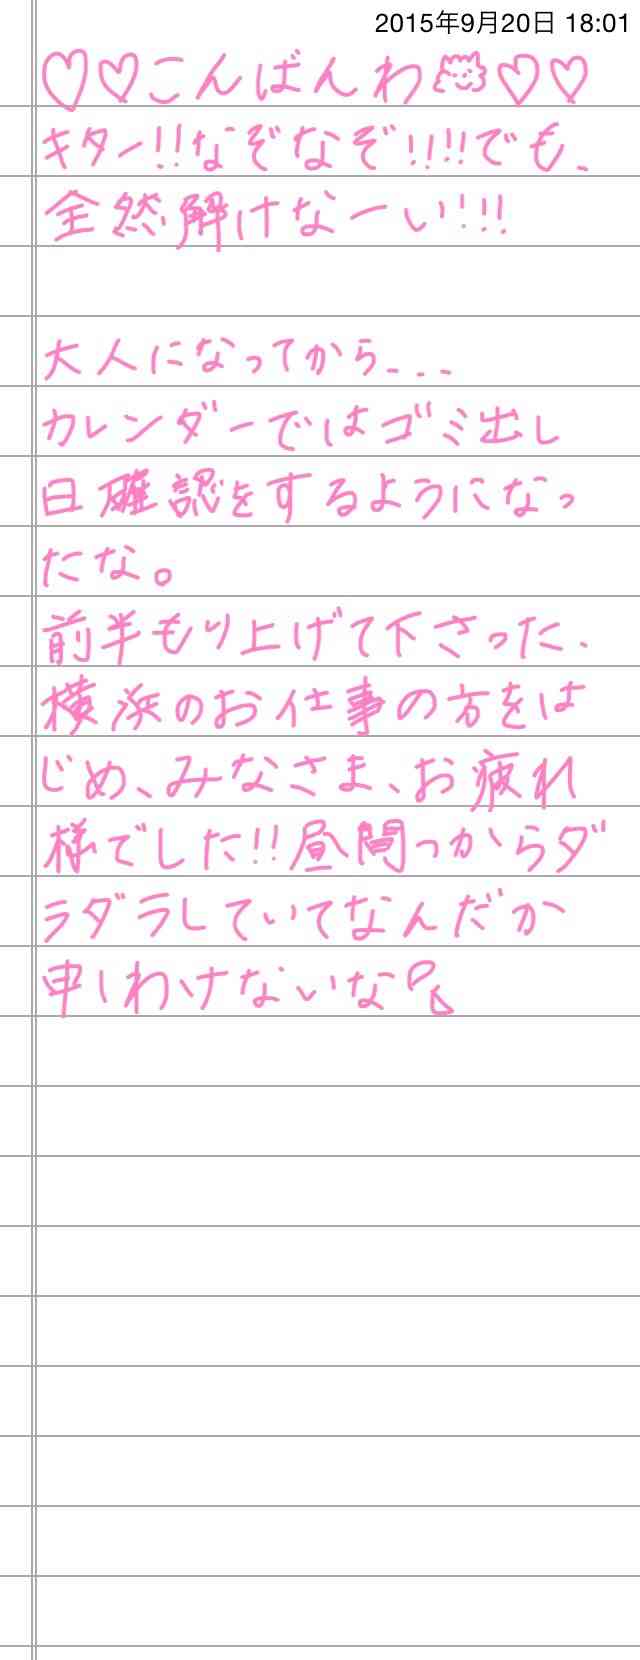 2015年9月20日 18:01
♡♡こんばんわ♡♡
キター!!なぞなぞ!!!!でも、
全然解けなーい!!!
大人になってから...
カレンダーではゴミ出し
日確認をするようになっ
たな。
前半もり上げて下さった、
横浜のお仕事の方をは
じめ、みなさま、お疲れ
様でした!!昼間っからダ
ラダラしていてなんだか
申しわけないな